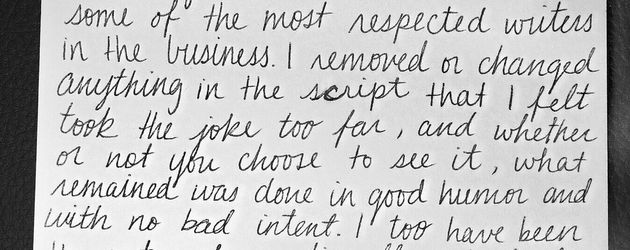 some of the most respected writers
in the business. I removed or changed
anything in the script that I felt
took the joke too far, and whether
or not you choose to see it, what
remained was done in good humor and
with no bad intent. I too have been